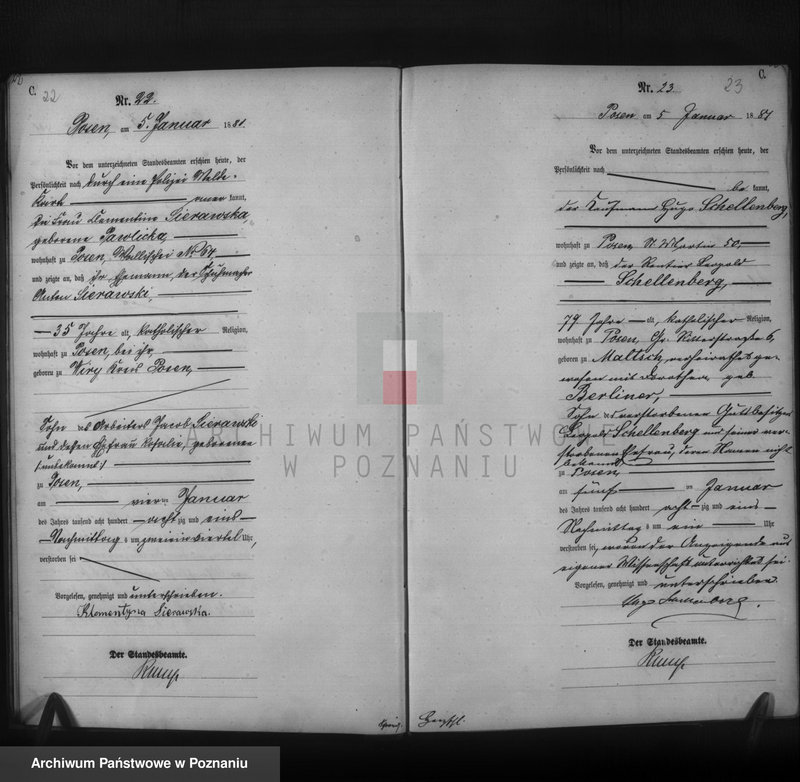 C.
22
Nr. 22.
Posen, am 5. Januar 1881.
Vor dem unterzeichneten Standesbeamten erschien heute, der
Persönlichkeit nach durch eine Polizei Melde-
Karte kannt,
die Frau Clementine Sierawska
geborene Pawlicka,
wohnhaft zu Posen, Wallischei No
und zeigte an, daß ihr Ehemann, der Schuhmacher
Anton Sierawski,
35 Jahre alt, katholischer Religion,
wohnhaft zu Posen, bei ihr,
geboren zu Wiry Kreis Posen,
Sohn des Arbeiters Jacob Sierawski
und dessen Ehefrau Rosalie, geborenen
(unbekannt)
zu Posen,
am vier ten Januar
des Jahres tausend acht hundert acht zig und eins
Nachmittag s um zweieinviertel Uhr,
verstorben sei
Vorgelesen, genehmigt und unterschrieben.
Klementyna Sierawska.
Der Standesbeamte.
C.
23
Nr. 23
Posen am 5 Januar 1881
Vor dem unterzeichneten Standesbeamten erschien heute, der
Persönlichkeit nach
be kannt,
der Kaufmann Hugo Schellenberg,
wohnhaft zu Posen, St. Martin 50,
und zeigte an, daß der Rentier Leopold
Schellenberg,
79 Jahre alt, katholischer Religion,
wohnhaft zu Posen, Gr. Ritterstraße 6,
geboren zu Maltsch, verheirathet ge-
wesen mit Dorothea, geb.
Berliner,
Sohn des verstorbenen Gutsbesitzers
Leopold Schellenberg und seiner ver-
storbenen Ehefrau, deren Namen nicht
bekannt
zu Posen
am fünf ten Januar
des Jahres tausend acht hundert acht zig und eins
Nachmittag s um ein Uhr
verstorben sei, wovon der Anzeigende aus
eigener Wissenschaft unterrichtet sei.
Vorgelesen, genehmigt und unterschrieben
Hugo Schellenberg.
Der Standesbeamte.
ARCHIWUM PAŃSTWOWE
W POZNANIU
Archiwum Państwowe w Poznaniu